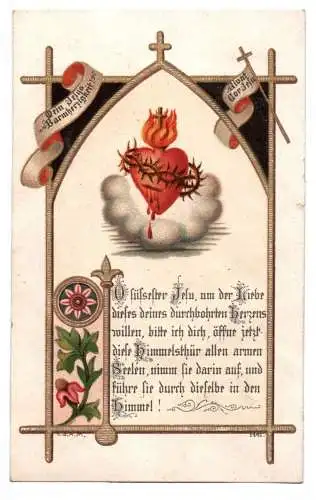 Mein Jesus
Barmherzigkeit!
Vivat
Cor Jesu
O süssester Jesu, um der Liebe
dieses deines durchbohrten Herzens
willen, bitte ich dich, öffne jetzt
diese Himmelsthür allen armen
Seelen, nimm sie darin auf, und
führe sie durch dieselbe in den
Himmel!